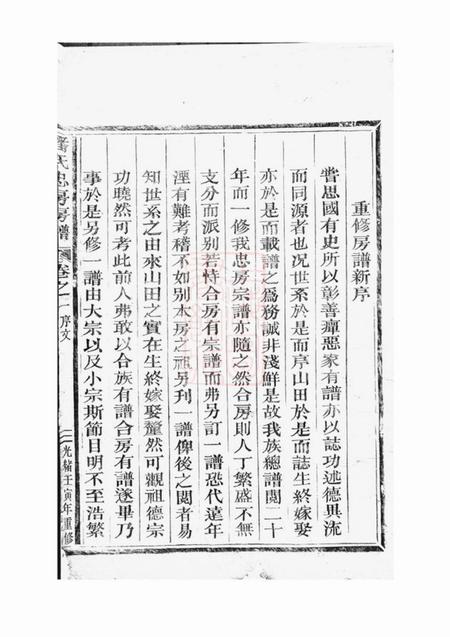 重修房譜新序
嘗思國有史所以彰善癉惡家有譜亦以誌功述德異流
而同源者也况世系於是而序山田於是而誌生終嫁娶
亦於是而載譜之爲務誠非淺鮮是故我族總譜閱二十
年而一修我忠房宗譜亦隨之然合房則人丁繁盛不無
支分而派別若恃合房有宗譜而弗另訂一譜恐代遠年
湮有難考稽不如別本房之祖另刊一譜俾後之閱者易
知世系之由來山田之實在生終嫁娶釐然可觀祖德宗
功曉然可考此前人弗敢以合族有譜合房有譜遂畢乃
事於是另修一譜由大宗以及小宗斯節目明不至浩繁
氏忠房房譜 卷之一 序文 二 光緒壬寅年重修